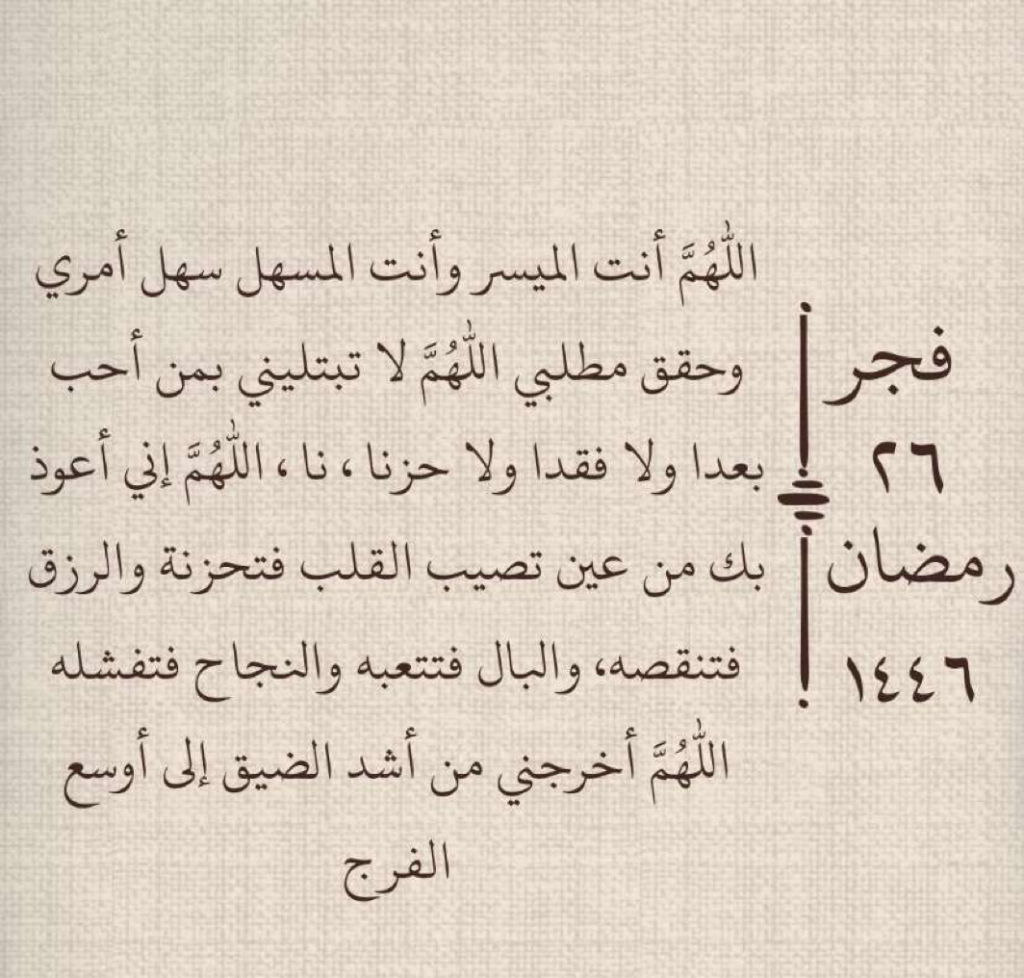 فجر
٢٦
رمضان
١٤٤٦
اللّٰهُمَّ أنت الميسر وأنت المسهل سهل أمري
وحقق مطلبي اللّٰهُمَّ لا تبتليني بمن أحب
بعدا ولا فقدا ولا حزنا ، نا ، اللّٰهُمَّ إني أعوذ
بك من عين تصيب القلب فتحزنة والرزق
فتنقصه، والبال فتتعبه والنجاح فتفشله
اللّٰهُمَّ أخرجني من أشد الضيق إلى أوسع
الفرج